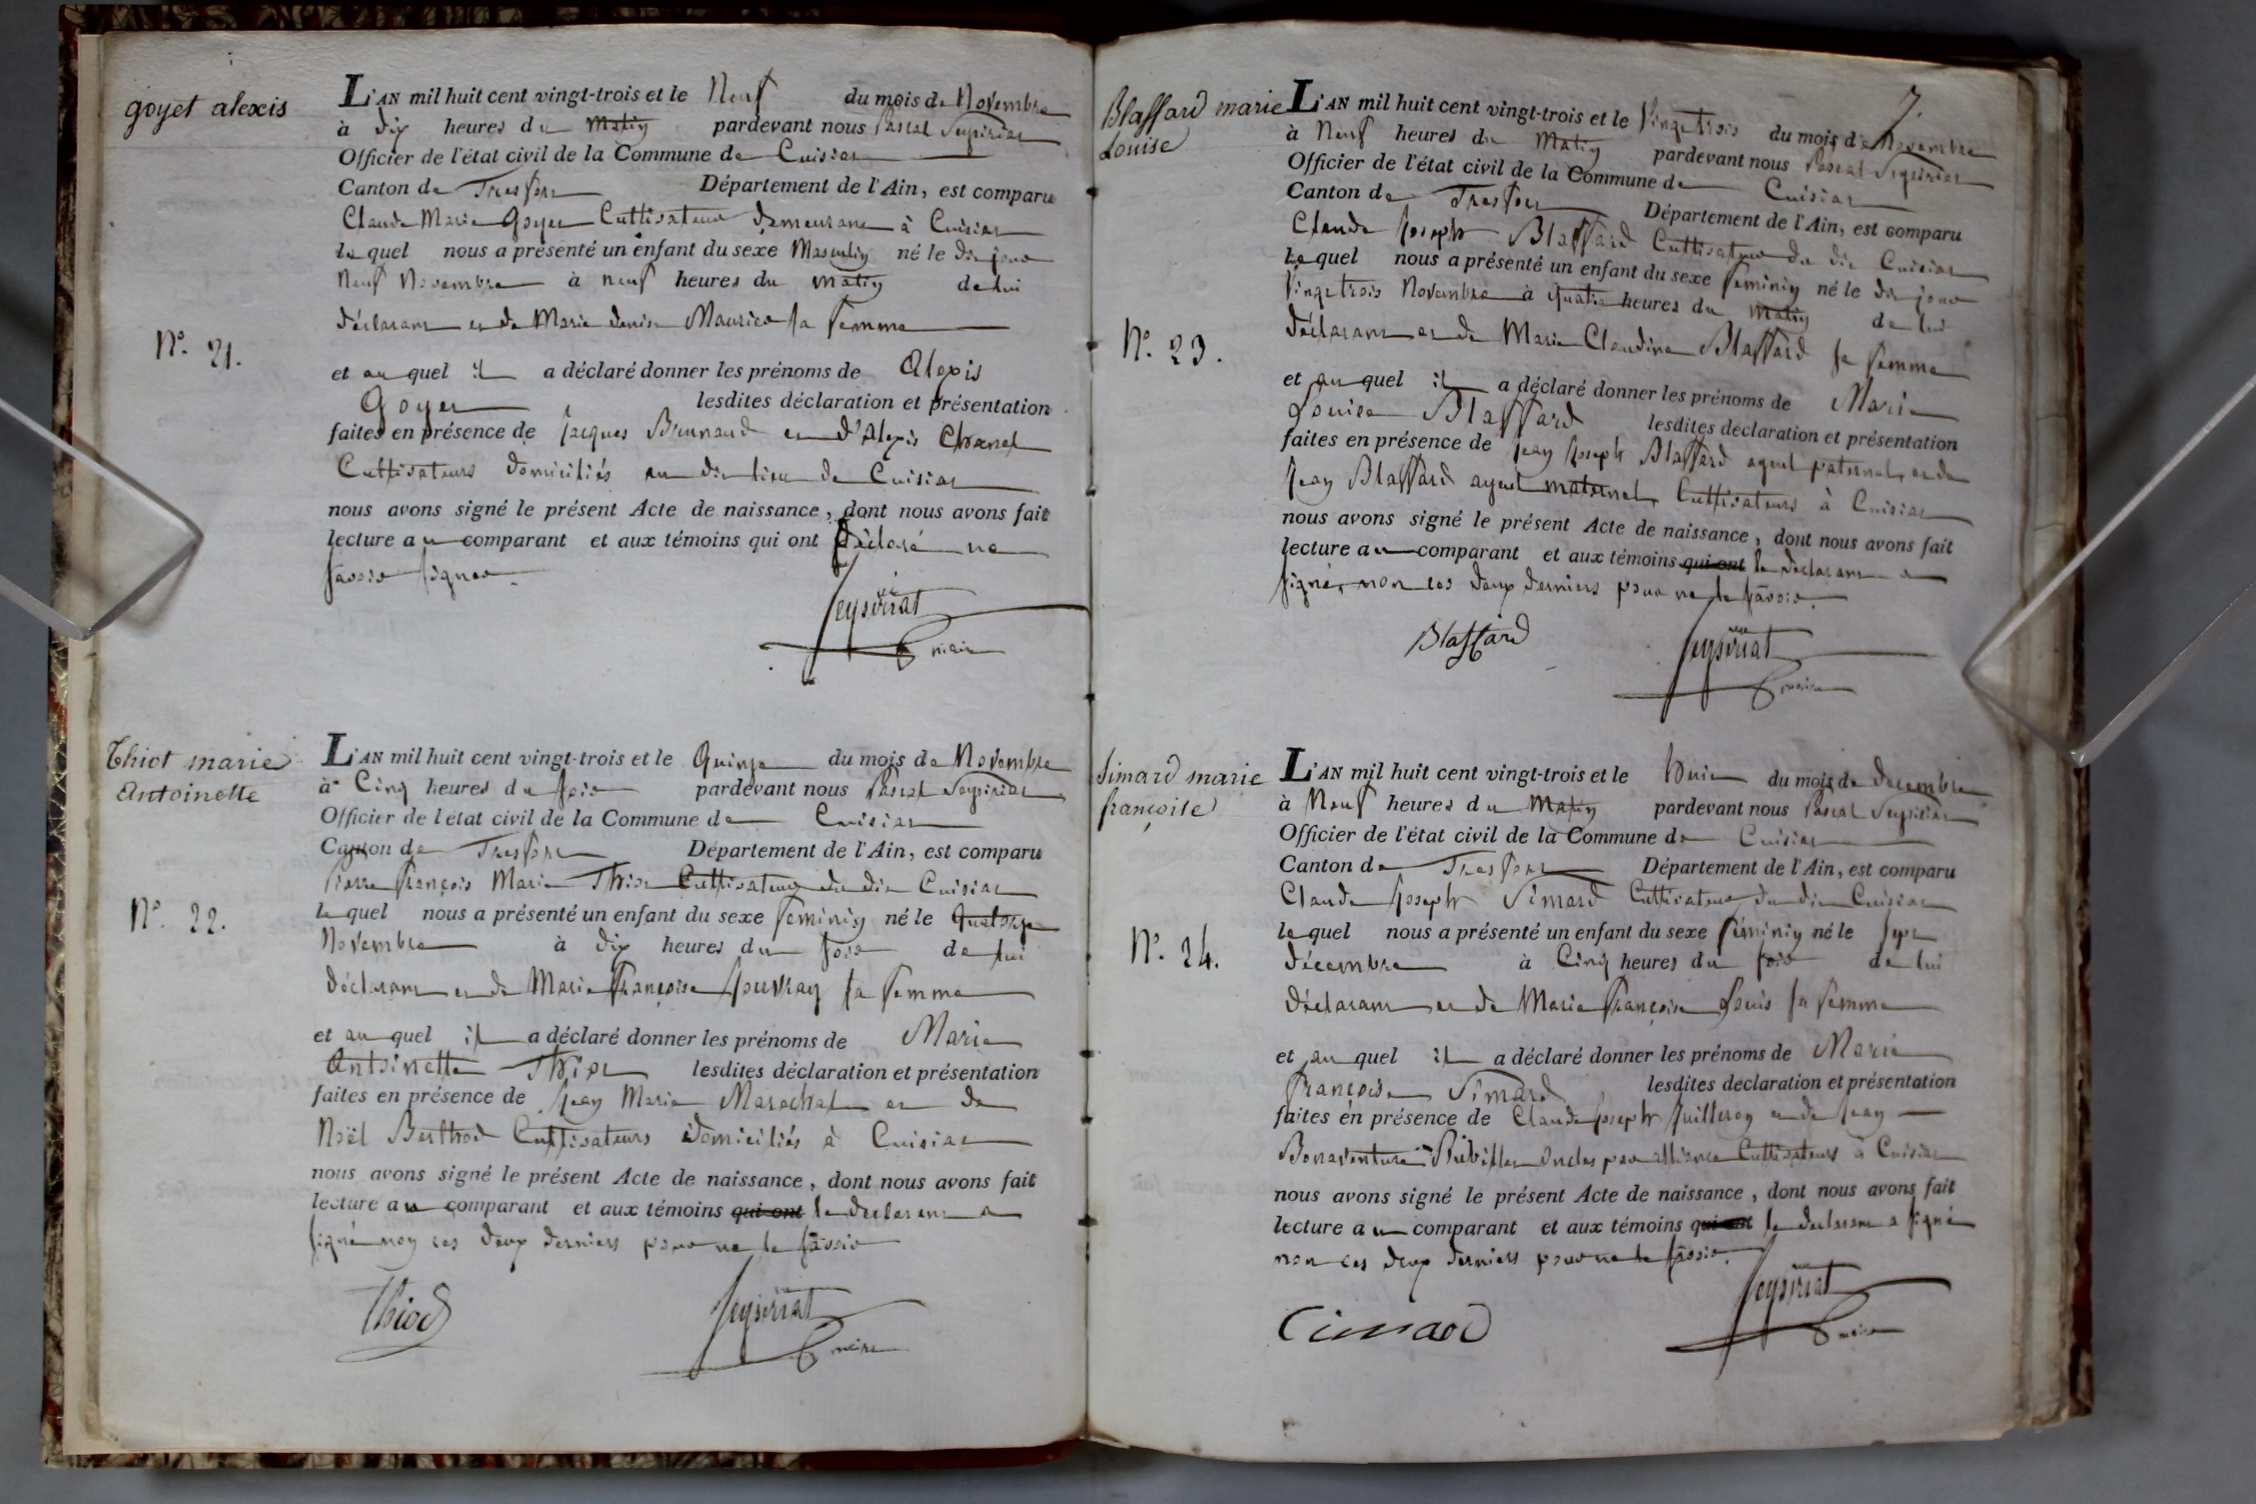 goyet alexis
L'AN mil huit cent vingt-trois et le Neuf du mois de Novembre
à dix heures du Matin pardevant nous Pascal Seysiriat
Officier de l'état civil de la Commune de Cuisiat
Canton de Tresfort Département de l'Ain, est comparu
Claude Marie Goyet Cultivateur demeurant à Cuisiat
lequel nous a présenté un enfant du sexe Masculin né le dit jour
Neuf Novembre à neuf heures du matin de lui
déclarant et de Marie denise Maurice sa femme
N° 21.
et auquel il a déclaré donner les prénoms de Alexis
Goyet lesdites déclaration et présentation
faites en présence de Jacques Brunaud et d'Alexis Chanel
Cultivateurs domiciliés au dit lieu de Cuisiat
nous avons signé le présent Acte de naissance, dont nous avons fait
lecture au comparant et aux témoins qui ont déclaré ne
savoir signer.
Seysiriat
maire
Thiot marie
Antoinette
L'AN mil huit cent vingt-trois et le Quinze du mois de Novembre
à Cinq heures du soir pardevant nous Pascal Seysiriat
Officier de l'état civil de la Commune de Cuisiat
Canton de Tresfort Département de l'Ain, est comparu
Pierre françois Marie Thiot Cultivateur du dit Cuisiat
lequel nous a présenté un enfant du sexe feminin né le Quatorze
Novembre à dix heures du soir de lui
déclarant et de Marie françoise Jouvray sa femme
N° 22.
et auquel il a déclaré donner les prénoms de Marie
Antoinette Thiot lesdites déclaration et présentation
faites en présence de Jean Marie Marechal et de
Noël Berthod Cultivateurs domiciliés à Cuisiat
nous avons signé le présent Acte de naissance, dont nous avons fait
lecture au comparant et aux témoins qui ont le déclarant a
signé non ces deux derniers pour ne le savoir
Thiod
Seysiriat
maire
7.
Blaffard marie
Louise
L'AN mil huit cent vingt-trois et le Vingt trois du mois de Novembre
à Neuf heures du Matin pardevant nous Pascal Seysiriat
Officier de l'état civil de la Commune de Cuisiat
Canton de Tresfort Département de l'Ain, est comparu
Claude Joseph Blaffard Cultivateur du dit Cuisiat
lequel nous a présenté un enfant du sexe feminin né le dit jour
Vingt trois Novembre à quatre heures du matin de lui
déclarant et de Marie Claudine Blaffard sa femme
N° 23.
et auquel il a déclaré donner les prénoms de Marie
Louise Blaffard lesdites déclaration et présentation
faites en présence de Jean Joseph Blaffard ayeul paternel, et de
Jean Blaffard ayeul maternel, Cultivateurs à Cuisiat
nous avons signé le présent Acte de naissance, dont nous avons fait
lecture au comparant et aux témoins qui ont le déclarant a
signé, non ces deux derniers pour ne le savoir.
Blaffard
Seysiriat
maire
Simard marie
françoise
L'AN mil huit cent vingt-trois et le huit du mois de decembre
à Neuf heures du Matin pardevant nous Pascal Seysiriat
Officier de l'état civil de la Commune de Cuisiat
Canton de Tresfort Département de l'Ain, est comparu
Claude Joseph Simard Cultivateur du dit Cuisiat
lequel nous a présenté un enfant du sexe féminin né le sept
décembre à Cinq heures du soir de lui
déclarant et de Marie françoise Louis sa femme
N° 24.
et auquel il a déclaré donner les prénoms de Marie
françoise Simard lesdites déclaration et présentation
faites en présence de Claude Joseph Juilleron et de Jean
Bonaventure oncles par alliance Cultivateurs à Cuisiat
nous avons signé le présent Acte de naissance, dont nous avons fait
lecture au comparant et aux témoins qui ont le déclarant a signé
non ces deux derniers pour ne le savoir.
Cimard
Seysiriat
maire